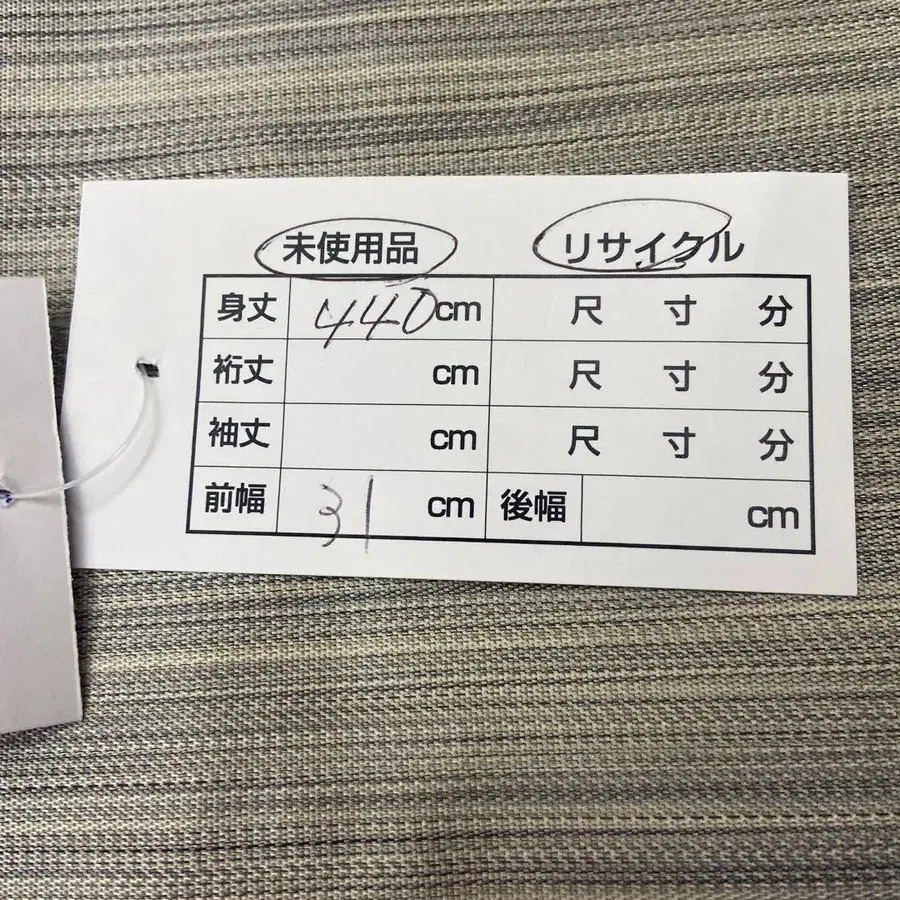 未使用品 リサイクル
身丈 440cm 尺 寸 分
裄丈 cm 尺 寸 分
袖丈 cm 尺 寸 分
前幅 31 cm 後幅 cm